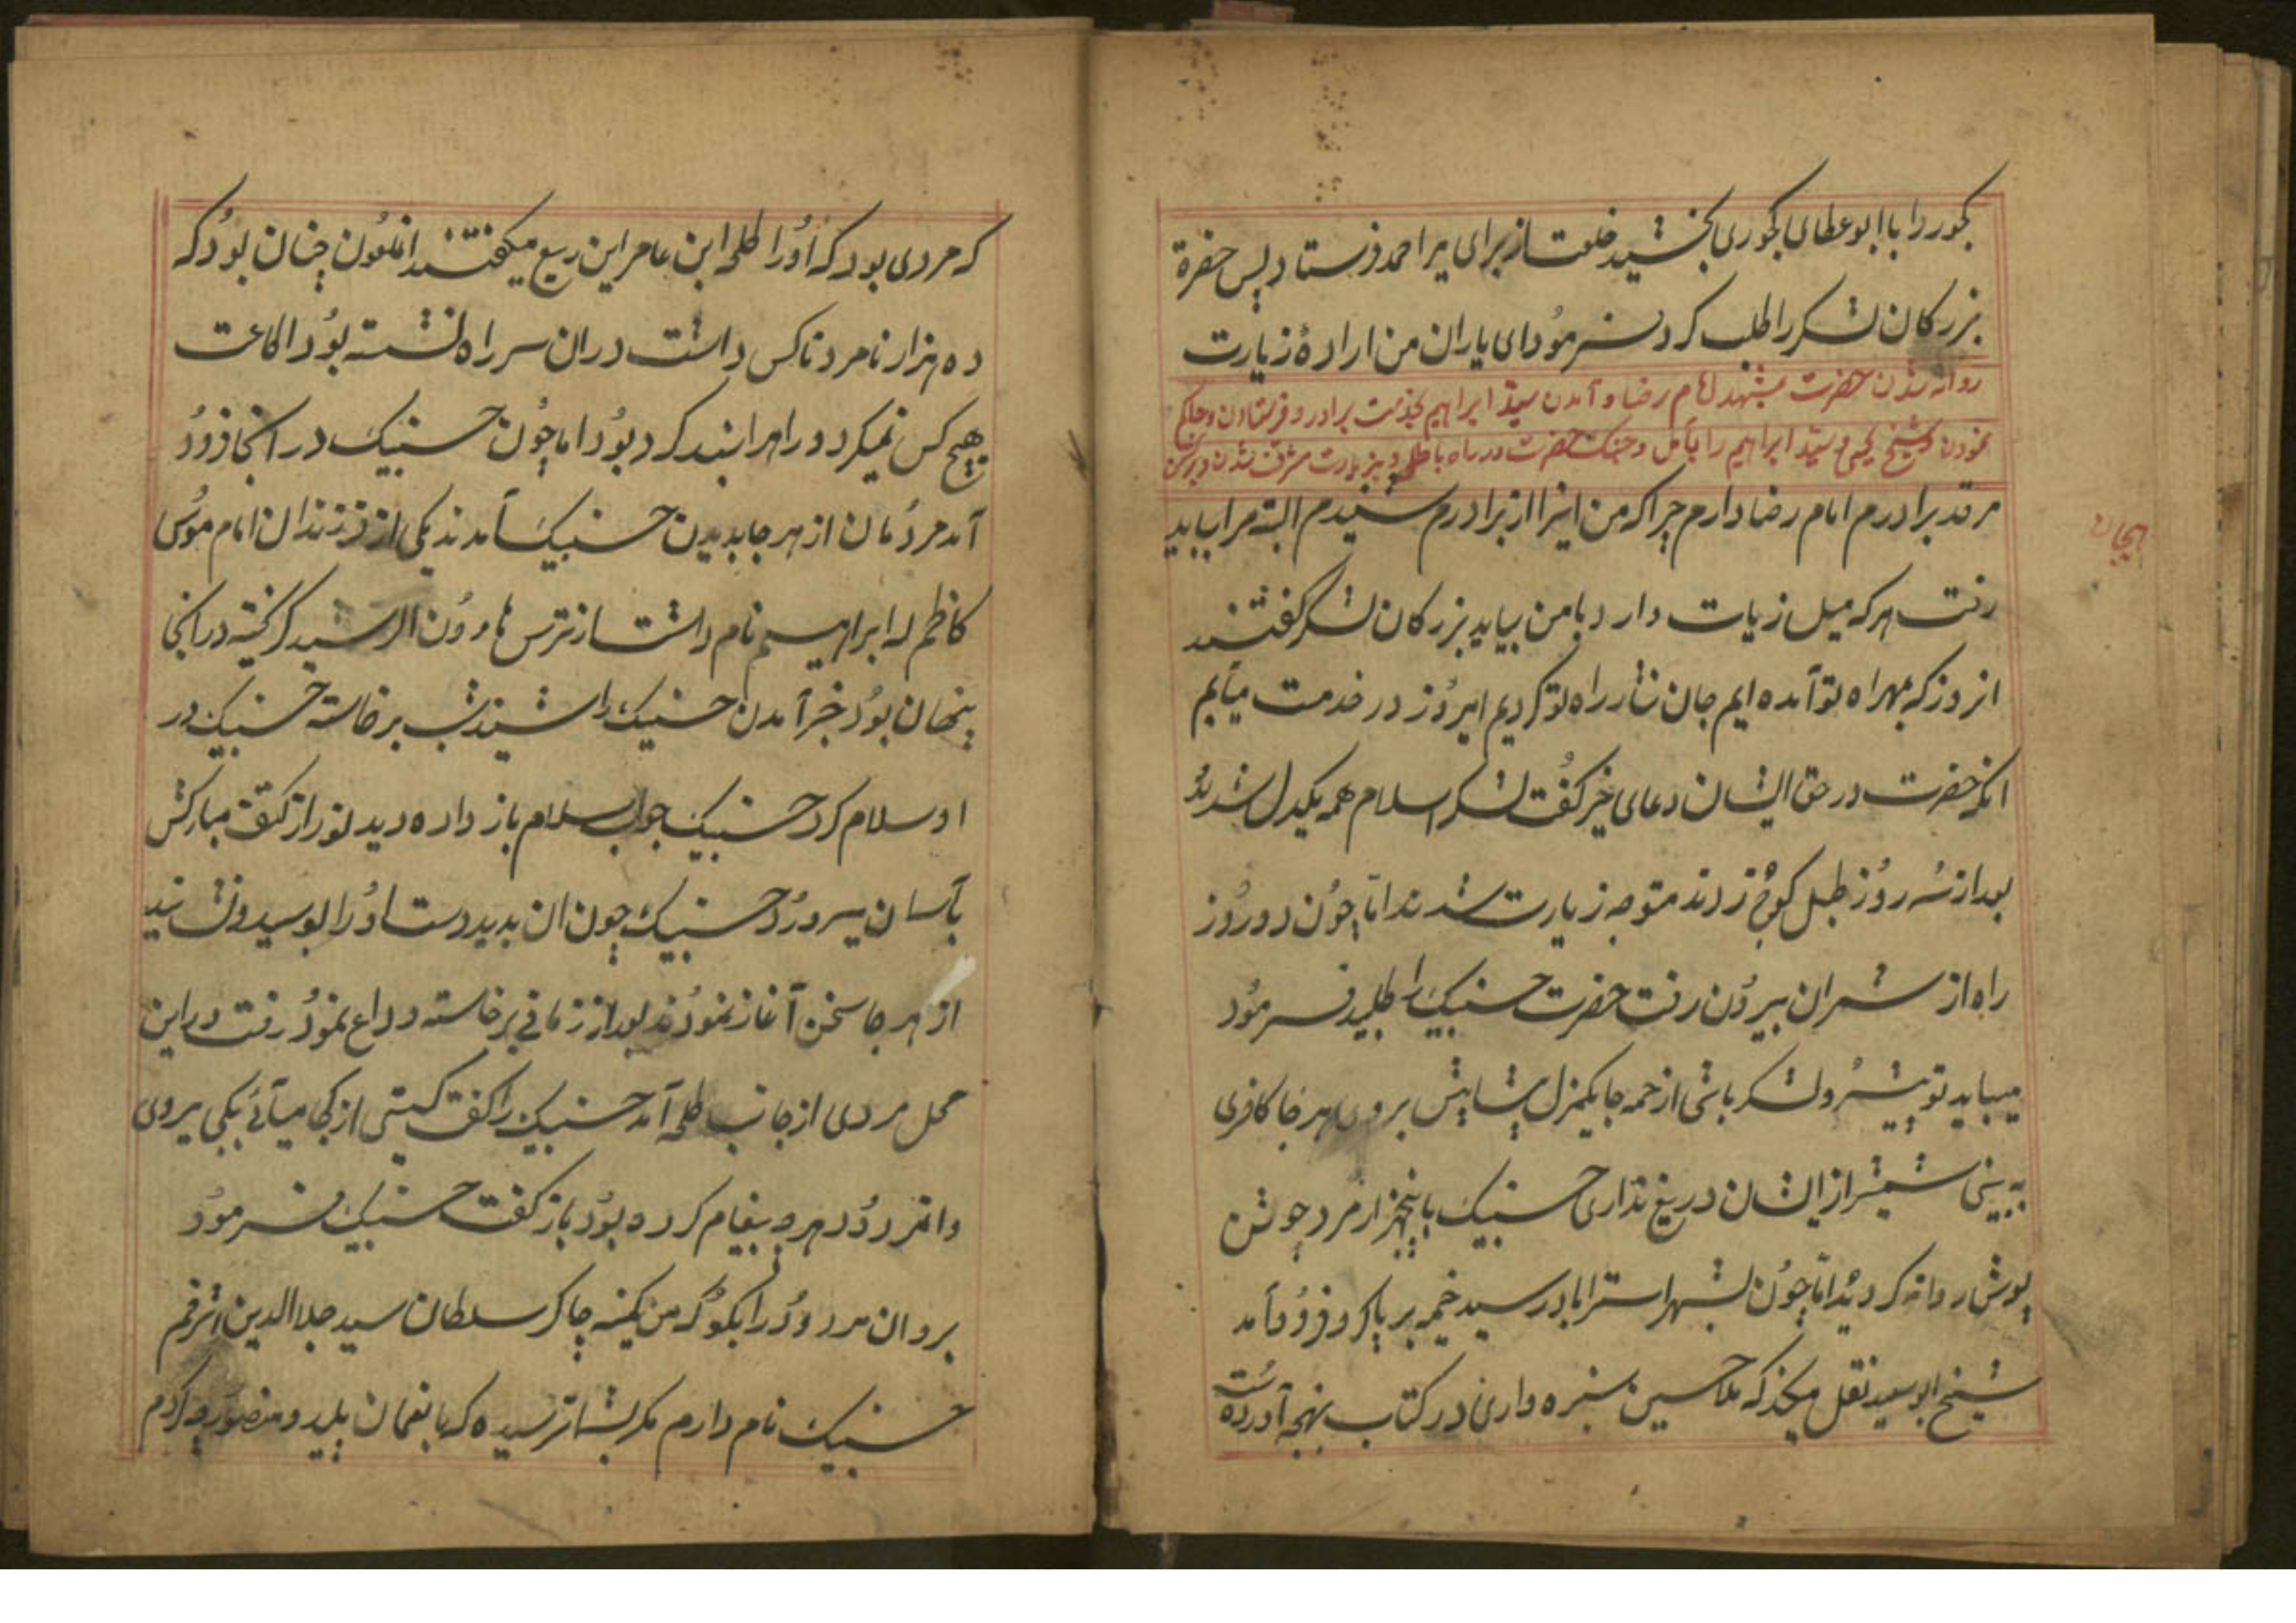 کجور را با ابو عطای کجوری بخشید خلعت از برای میر احمد فرستاد پس حضرة
بزرکان لشکر را طلب کرد فرمود ای یاران من ارادهٔ زیارت
روانه شدن حضرت بمشهد امام رضا و آمدن سید ابراهیم بخدمت برادر و فرستادن و حاکم
نمودن شیخ یحیی و سید ابراهیم را بآمل و جنک حضرت در راه با طلحه و بزیارت مشرف شدن
مرقد برادرم امام رضا دارم چرا که من اینرا از برادرم شنیدم البته مرا بباید
رفت هر که میل زیات دارد با من بیاید بزرکان لشکر کفتند
انروز که بهمراه تو آمده ایم جان نثار راه تو کردیم امروز در خدمت میآیم
انکه حضرت در حق ایشان دعای خیر کفت لشکر اسلام همه یکدل شدند
بعد از سه روز طبل کوچ زدند متوجه زیارت شدند اما چون دو روز
راه از شمران بیرون رفت حضرت حسنیک را طلبید فرمود
میباید تو پیشرو لشکر باشی از همه جا یکمنزل پیشاپیش بروی هر جا کافری
به بینی شمشیر از ایشان دریغ نداری حسنیک با پنجهزار مرد جوشن
پوش روانه کردید اما چون بشهر استراباد رسید خیمه بر پا کرد فرود آمد
شیخ ابو سعید نقل میکند که ملا حسین سبزه واری در کتاب بهجه آورده است
که مردی بود که اورا طلحه ابن عامر ابن ربیع میکفتند انملعون چنان بود که
ده هزار نامرد ناکس داشت در ان سر راه نشسته بود اطاعت
هیچ کس نمیکرد و راهرا بند کرد بود اما چون حسنیک در انجا فرود
آمد مردمان از هر جا بدیدن حسنیک آمدند یکی از فرزندان امام موسی
کاظم که ابراهیم نام داشت از ترس هارون الرشید کریخته در انجا
پنهان بود خبر آمدن حسنیک را شنید شب برخاسته حسنیک در
او سلام کرد حسنیک جواب سلام باز داده دید نور از کتف مبارکش
بآسمان میرود حسنیک چون ان بدید دست اورا بوسید و نشانید
از هر جا سخن آغاز نمودند بعد از زمانی برخاسته وداع نمود رفت در این
محل مردی از جانب طلحه آمد حسنیک را کفت کیستی از کجا میآئی بکجا میروی
وانمردود هر چه پیغام کرده بود باز کفت حسنیک فرمود
برو ان مردود را بکو که من کمینه چاکر سلطان سید جلالدین اشرفم
حسنیک نام دارم مکر بشما نرسیده که با نعمان پلید و منصور چه کردم